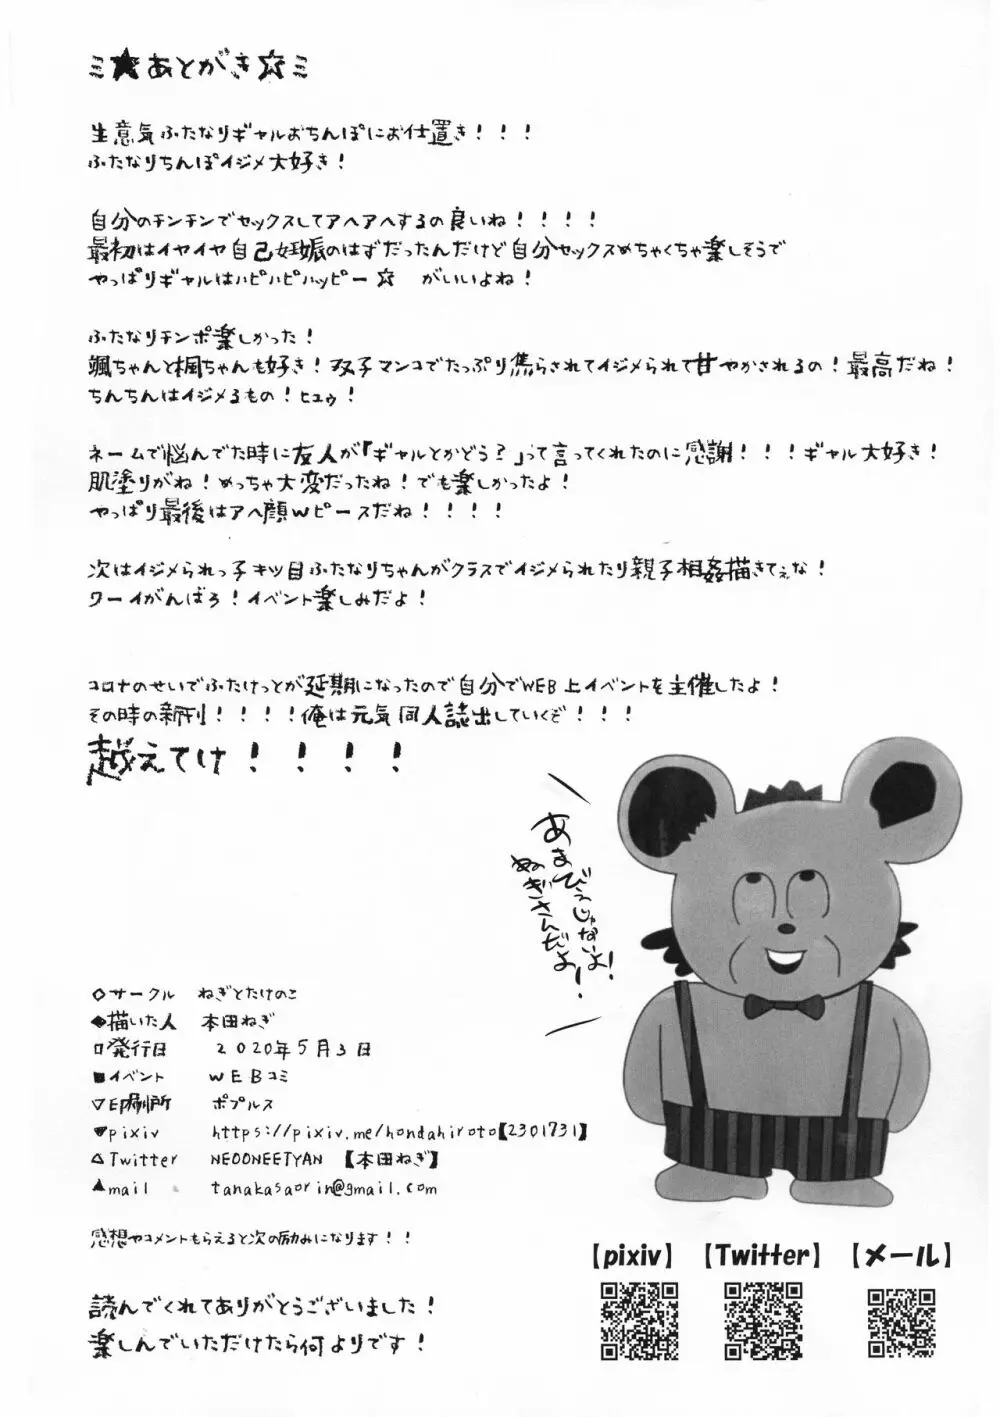 ミ★あとがき☆ミ
生意気ふたなりギャルおちんぽにお仕置き！！！
ふたなりちんぽイジメ大好き！
自分のチンチンでセックスしてアヘアヘするの良いね！！！！
最初はイヤイヤ自己妊娠のはずだったんだけど自分セックスめちゃくちゃ楽しそうで
やっぱりギャルはハピハピハッピー☆　がいいよね！
ふたなりチンポ楽しかった！
颯ちゃんと楓ちゃんも好き！双子マンコでたっぷり焦らされてイジメられて甘やかされるの！最高だね！
ちんちんはイジメるもの！ヒュゥ！
ネームで悩んでた時に友人が「ギャルとかどう？」って言ってくれたのに感謝！！！ギャル大好き！
肌塗りがね！めっちゃ大変だったね！でも楽しかったよ！
やっぱり最後はアヘ顔Wピースだね！！！！
次はイジメられっ子キツ目ふたなりちゃんがクラスでイジメられたり親子相姦描きてぇな！
ワーイがんばろ！イベント楽しみだよ！
コロナのせいでふたけっとが延期になったので自分でWEB上イベントを主催したよ！
その時の新刊！！！！俺は元気同人誌出していくぞ！！！
越えてけ！！！！
あまびえじゃないよ！
ぬぎさんだよ！
◇サークル　ねぎとたけのこ
◆描いた人　本田ねぎ
□発行日　２０２０年５月３日
■イベント　WEBコミ
▽印刷所　ポプルス
▼pixiv　https://pixiv.me/hondahiroto【2301731】
△Twitter　NEOONEETYAN【本田ねぎ】
▲mail　tanakasaorin@gmail.com
感想やコメントもらえると次の励みになります！！
読んでくれてありがとうございました！
楽しんでいただけたら何よりです！
【pixiv】【Twitter】【メール】